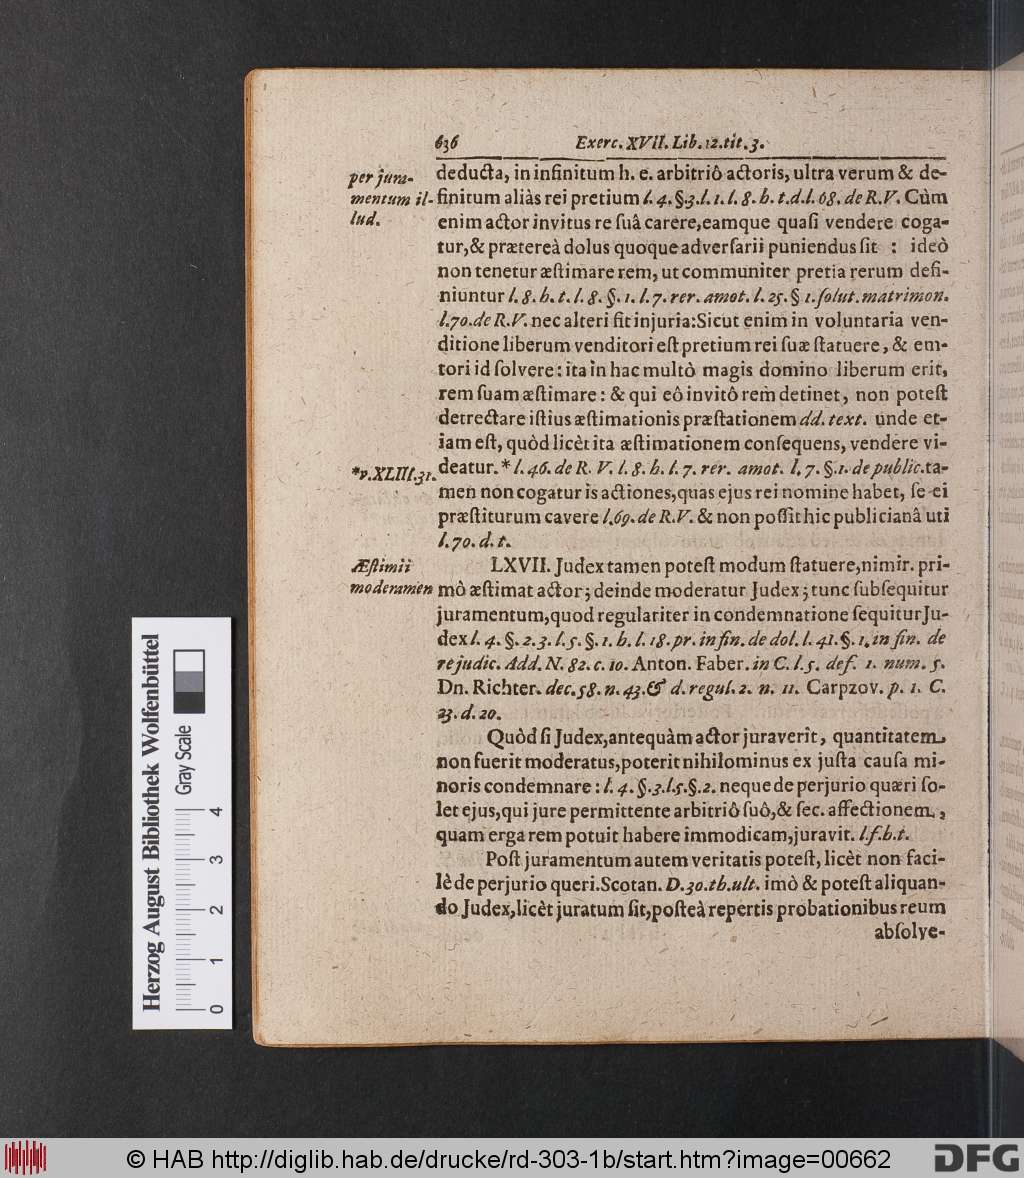 636 Exerc. XVII. Lib. 12. tit. 3.
per jura-
mentum il-
lud.
deducta, in infinitum h. e. arbitriô actoris, ultra verum & de-
finitum aliàs rei pretium l. 4. §.3. l. 1. l. 8. h. t. d. l. 68. de R.V. Cùm
enim actor invitus re ſuâ carere, eamque quaſi vendere coga-
tur, & prætereà dolus quoque adverſarii puniendus ſit : ideò
non tenetur æſtimare rem, ut communiter pretia rerum defi-
niuntur l. 8. h. t. l. 8. §. 1. l. 7. rer. amot. l. 25. § 1. ſolut. matrimon.
l. 70. de R.V. nec alteri fit injuria: Sicut enim in voluntaria ven-
ditione liberum venditori eſt pretium rei ſuæ ſtatuere, & em-
tori id ſolvere: ita in hac multò magis domino liberum erit,
rem ſuam æſtimare: & qui eô invitô rem detinet, non poteſt
detrectare iſtius æſtimationis præſtationem dd. text. unde et-
iam eſt, quòd licèt ita æſtimationem conſequens, vendere vi-
*v. XLIII. 31.
deatur. * l. 46. de R. V. l. 8. h. l. 7. rer. amot. l. 7. §. 1. de public. ta-
men non cogatur is actiones, quas ejus rei nomine habet, ſe ei
præſtiturum cavere l. 69. de R.V. & non poſſit hic publicianâ uti
l. 70. d. t.
Æſtimii
moderamen
LXVII. Judex tamen poteſt modum ſtatuere, nimir. pri-
mô æſtimat actor; deinde moderatur Judex; tunc ſubſequitur
juramentum, quod regulariter in condemnatione ſequitur Ju-
dex l. 4. §. 2. 3. l. 5. §. 1. h. l. 18. pr. in fin. de dol. l. 41. §. 1. in fin. de
re judic. Add. N. 82. c. 10. Anton. Faber. in C. l. 5. def. 1. num. 5.
Dn. Richter. dec. 58. n. 43. & d. regul. 2. n. 11. Carpzov. p. 1. C.
23. d. 20.
Quòd ſi Judex, antequàm actor juraverit, quantitatem
non fuerit moderatus, poterit nihilominus ex juſta cauſa mi-
noris condemnare: l. 4. §. 3. l. 5. §. 2. neque de perjurio quæri ſo-
let ejus, qui jure permittente arbitriô ſuô, & ſec. affectionem,
quam erga rem potuit habere immodicam, juravit. l. f. h. t.
Poſt juramentum autem veritatis poteſt, licèt non faci-
lè de perjurio queri. Scotan. D. 30. th. ult. imò & poteſt aliquan-
do Judex, licèt juratum ſit, poſteà repertis probationibus reum
abſolve-
Herzog August Bibliothek Wolfenbüttel
Gray Scale
0 1 2 3 4
© HAB http://diglib.hab.de/drucke/rd-303-1b/start.htm?image=00662
DFG